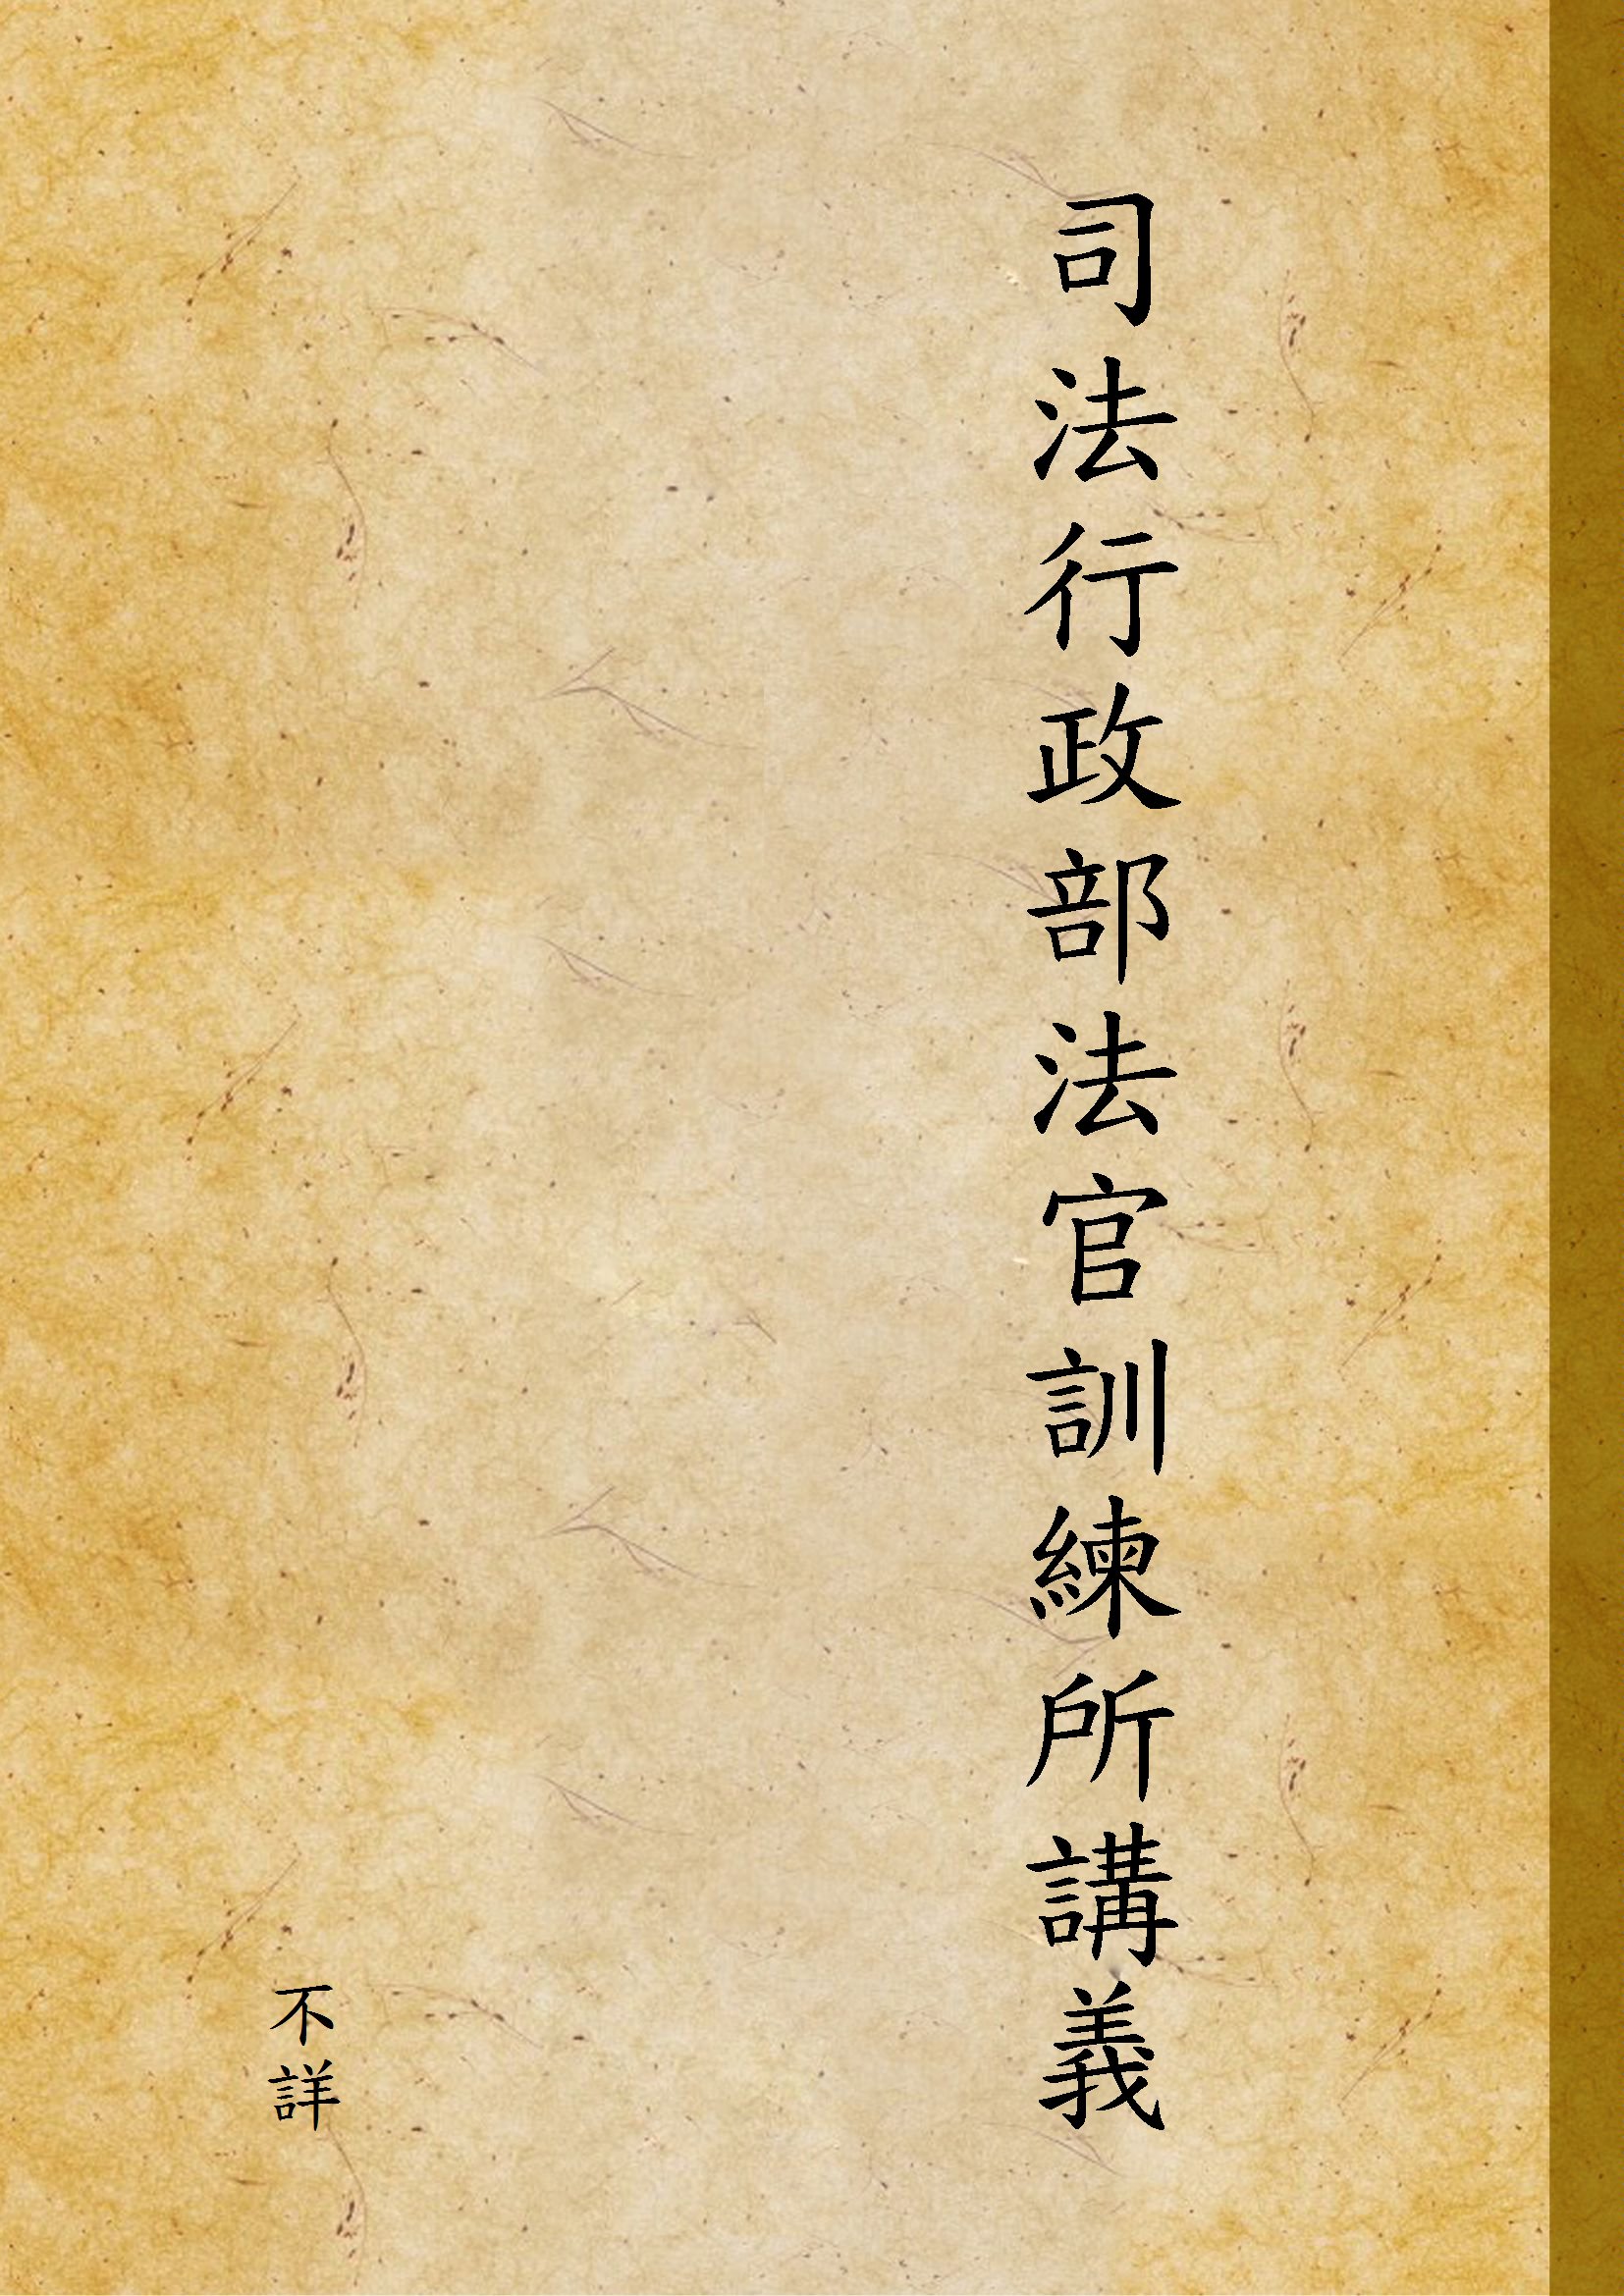 司法行政部法官訓練所講義
不詳